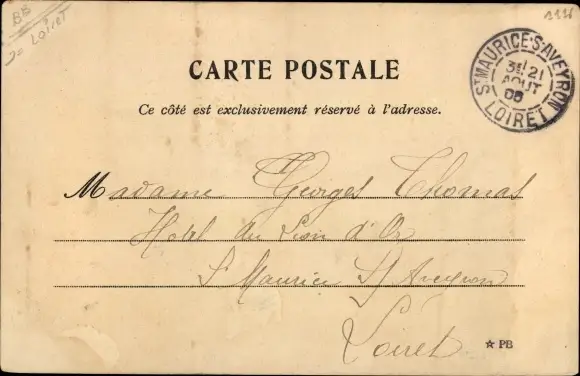 BB
Loiret
CARTE POSTALE
Ce côté est exclusivement réservé à l'adresse.
ST MAURICE-S-AVEYRON
3E/21
AOUT
06
LOIRET
Madame Georges Thomas
Hotel du Lion d'Or
St Maurice S/ Aveyron
Loiret
☆ PB